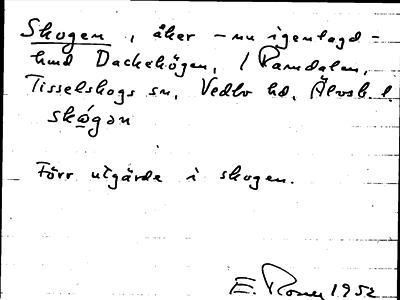 Skogen, åker – nu igenlagd –
hmd Dackehögen, / Ramdalen,
Tisselskogs sn, Vedbo hd, Älvsb. l.
skógən
Förr utgärde i skogen.
E. Rosen 1952